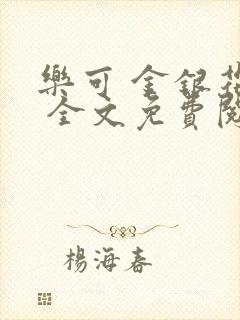 樂可 金銀花
全文免費閱
楊海春